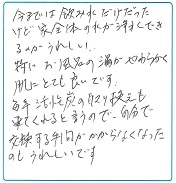 今までは飲み水だけだった
けど家全体の水が浄水でき
るのがうれしい。
特にお風呂の湯がやわらかく
肌にとても良いです。
毎年活性炭の取り換えも
来てくれると言うので、自分で
交換する手間がかからなくなった
のもうれしいです